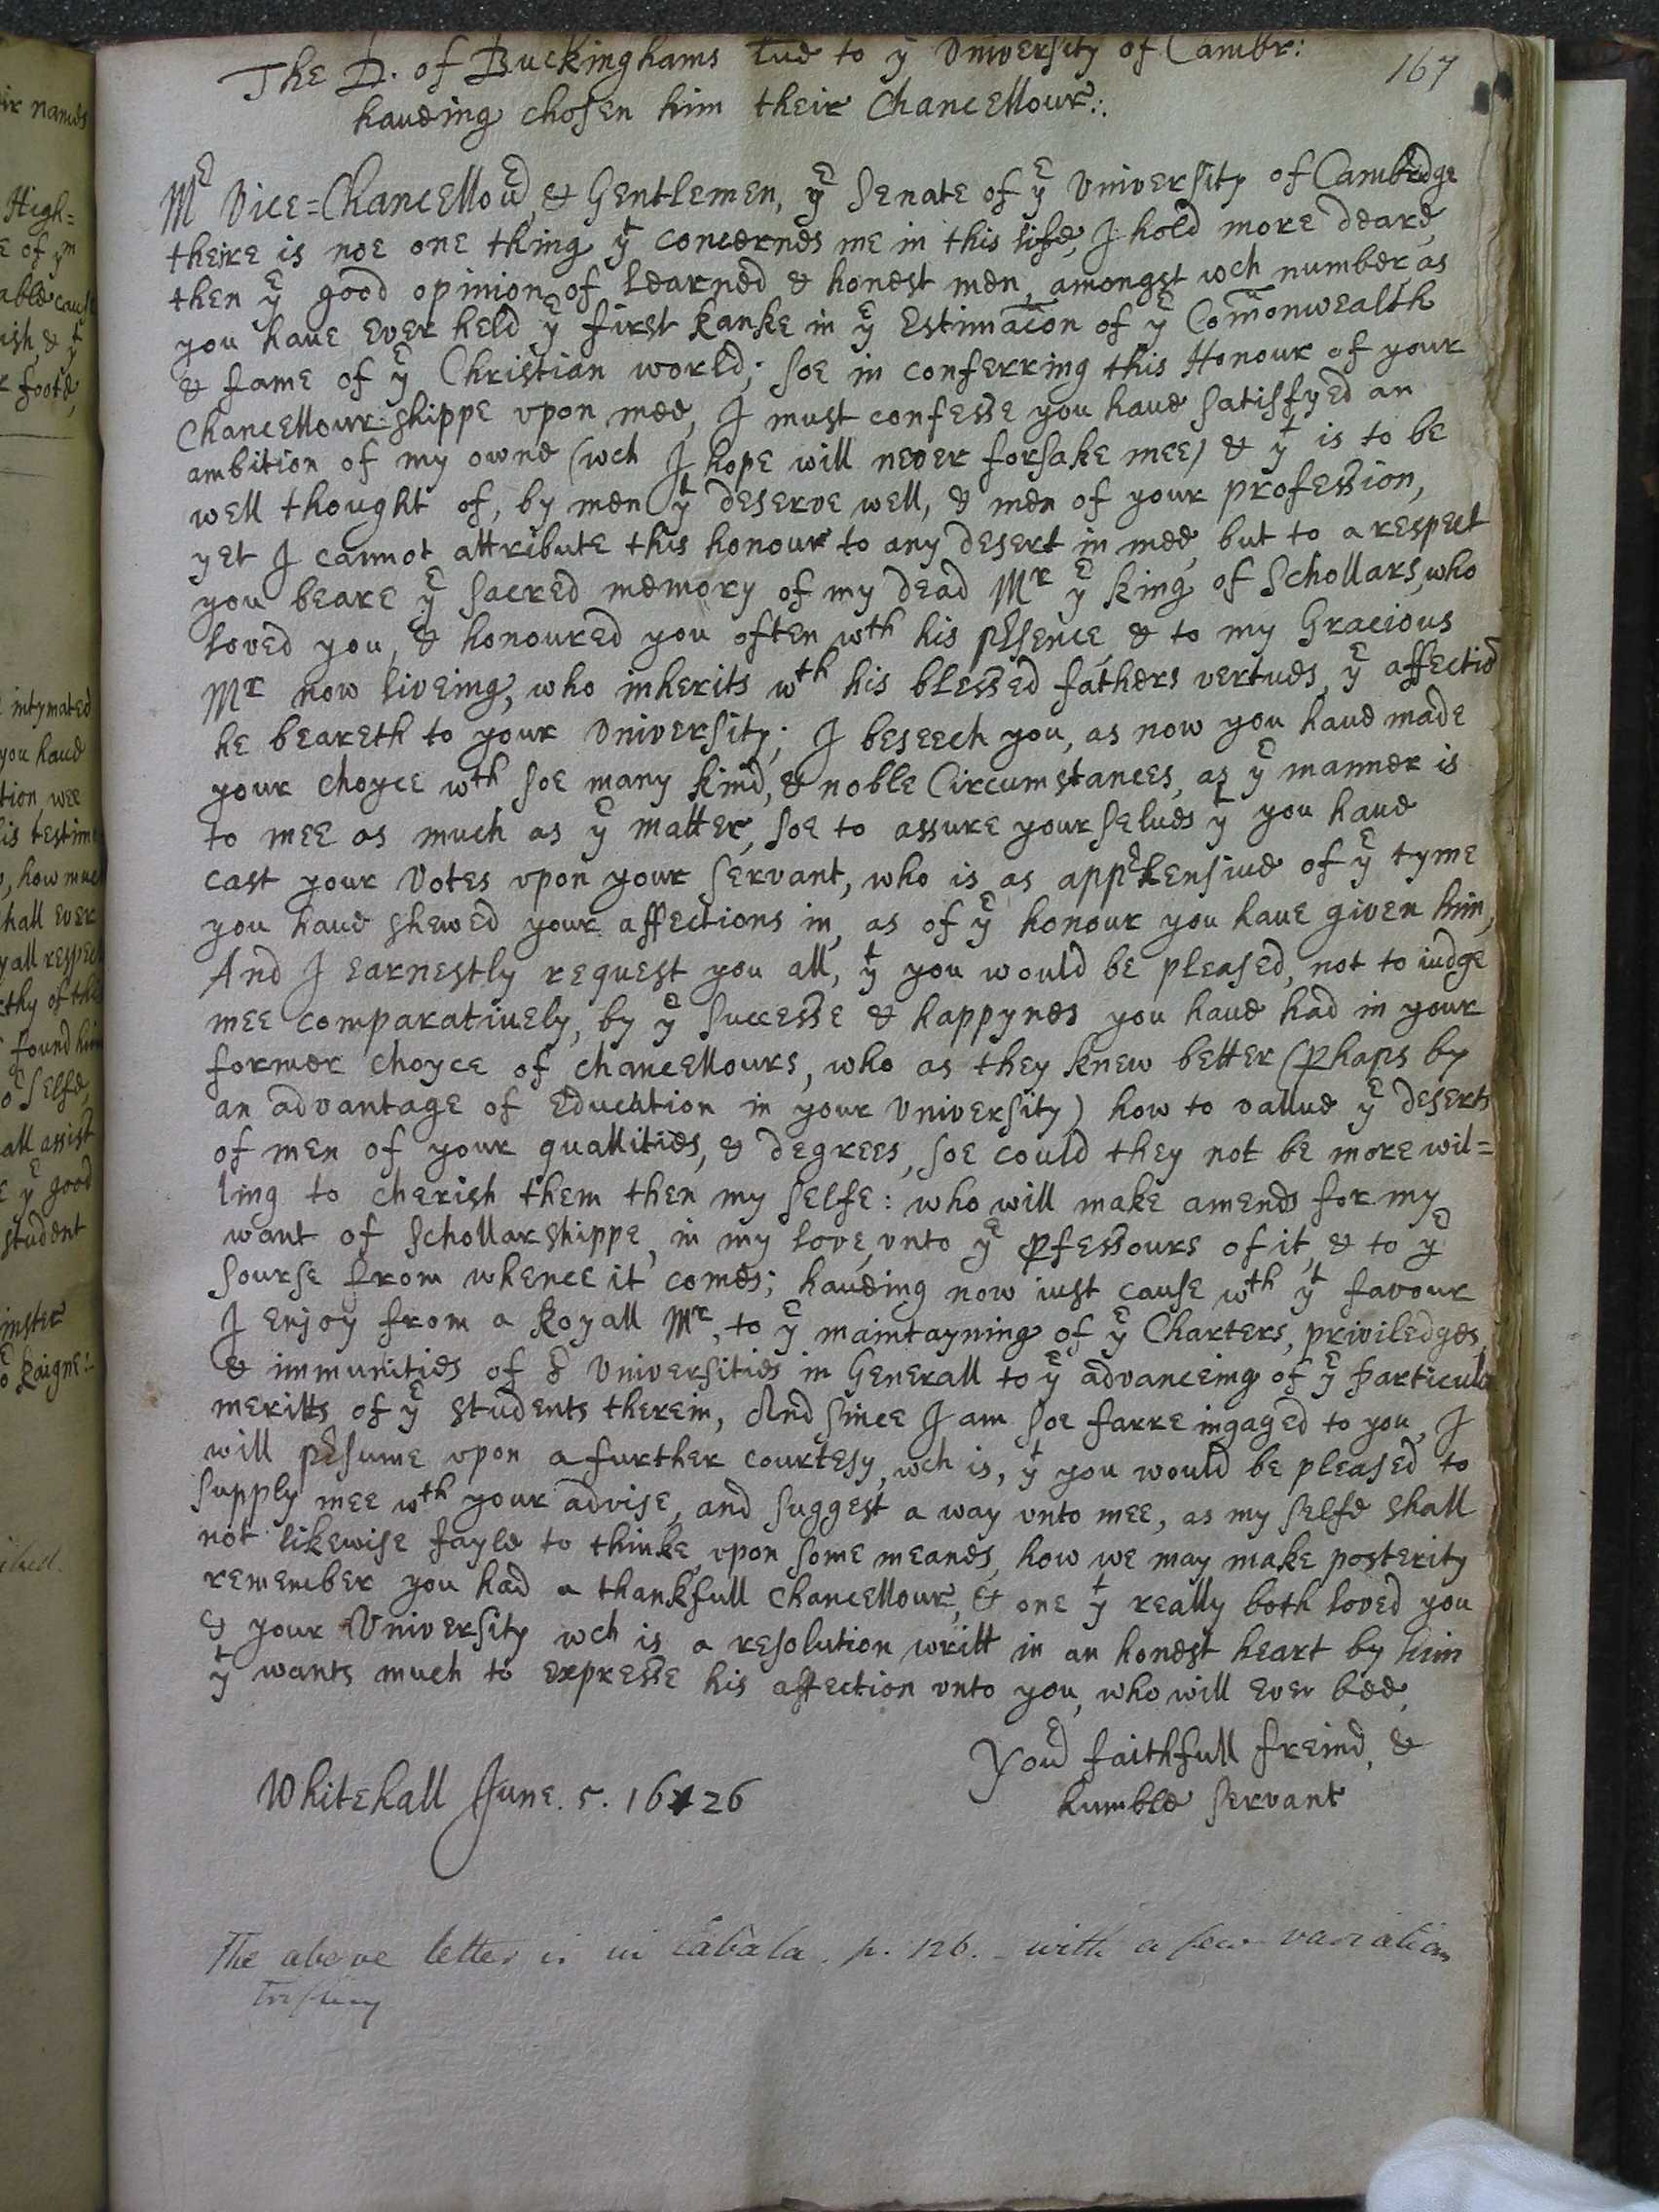 167
The D. of Buckinghams tre to ye University of Cambr:
haueing chosen him their Chancellour:.
Mr Vice=Chancellour, & Gentlemen, ye Senate of ye University of Cambridge
theire is noe one thing yt concernes me in this life, I hold more deare,
then ye good opinion of learned & honest men, amongst wch number as
you haue ever held ye first Ranke in ye Estimacon of ye Comonwealth
& fame of ye Christian world; soe in conferring this Honour of your
Chancellour-shippe vpon mee, I must confesse you haue satisfyed an
ambition of my owne (wch I hope will never forsake mee) & yt is to be
well thought of, by men yt deserve well, & men of your profession,
yet I cannot attribute this honour to any desert in mee, but to a respect
you beare ye sacred memory of my dead Mr ye king of Schollars, who
loved you, & honoured you often wth his presence, & to my Gracious
Mr now liveing, who inherits wth his blessed fathers vertues, ye affectio
he beareth to your University; I beseech you, as now you haue made
your choyce wth soe many kind, & noble Circumstances, as ye manner is
to mee as much as ye matter, soe to assure yourselues yt you haue
cast your Votes vpon your servant, who is as apprehensiue of ye tyme
you haue shewed your affections in, as of ye honour you haue given him,
And I earnestly request you all, yt you would be pleased, not to iudge
mee comparatiuely, by ye successe & happynes you haue had in your
former choyce of chancellours, who as they knew better (phaps by
an advantage of Education in your University) how to vallue ye deserts
of men of your quallities, & degrees, soe could they not be more wil=
ling to cherish them then my selfe: who will make amends for my
want of Schollarshippe, in my love vnto ye pfessours of it, & to ye
sourse from whence it comes; haueing now iust cause wth yt favour
I enjoy from a Royall Mr, to ye maintayning of ye Charters, priviledges,
& immunities of ye Universities in Generall to ye advanceing of ye particula
meritts of ye students therein, And since I am soe farre ingaged to you, I
will presume vpon a further courtesy, wch is, yt you would be pleased to
supply mee wth your advise, and suggest a way vnto mee, as my selfe shall
not likewise fayle to thinke vpon some meanes, how we may make posterity
remember you had a thankfull Chancellour, & one yt really both loved you
& your University wch is a resolution writt in an honest heart by him
yt wants much to expresse his affection vnto you, who will ever bee,
Your faithfull freind, &
humble servant
Whitehall June. 5. 1626
The above letter is in Cabala. p. 126. with a few variations
trifling